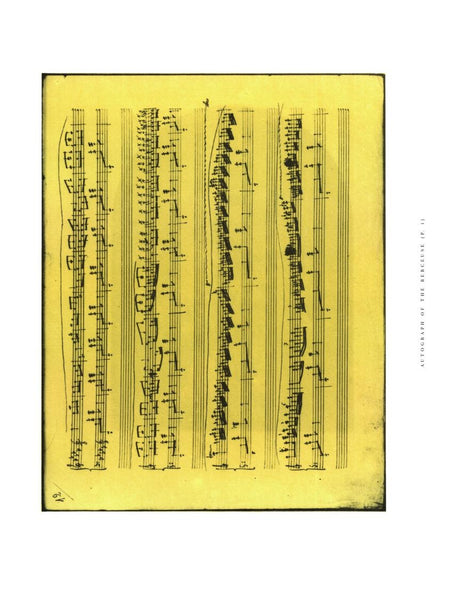 AUTOGRAPH OF THE BERCEUSE (P. 1)